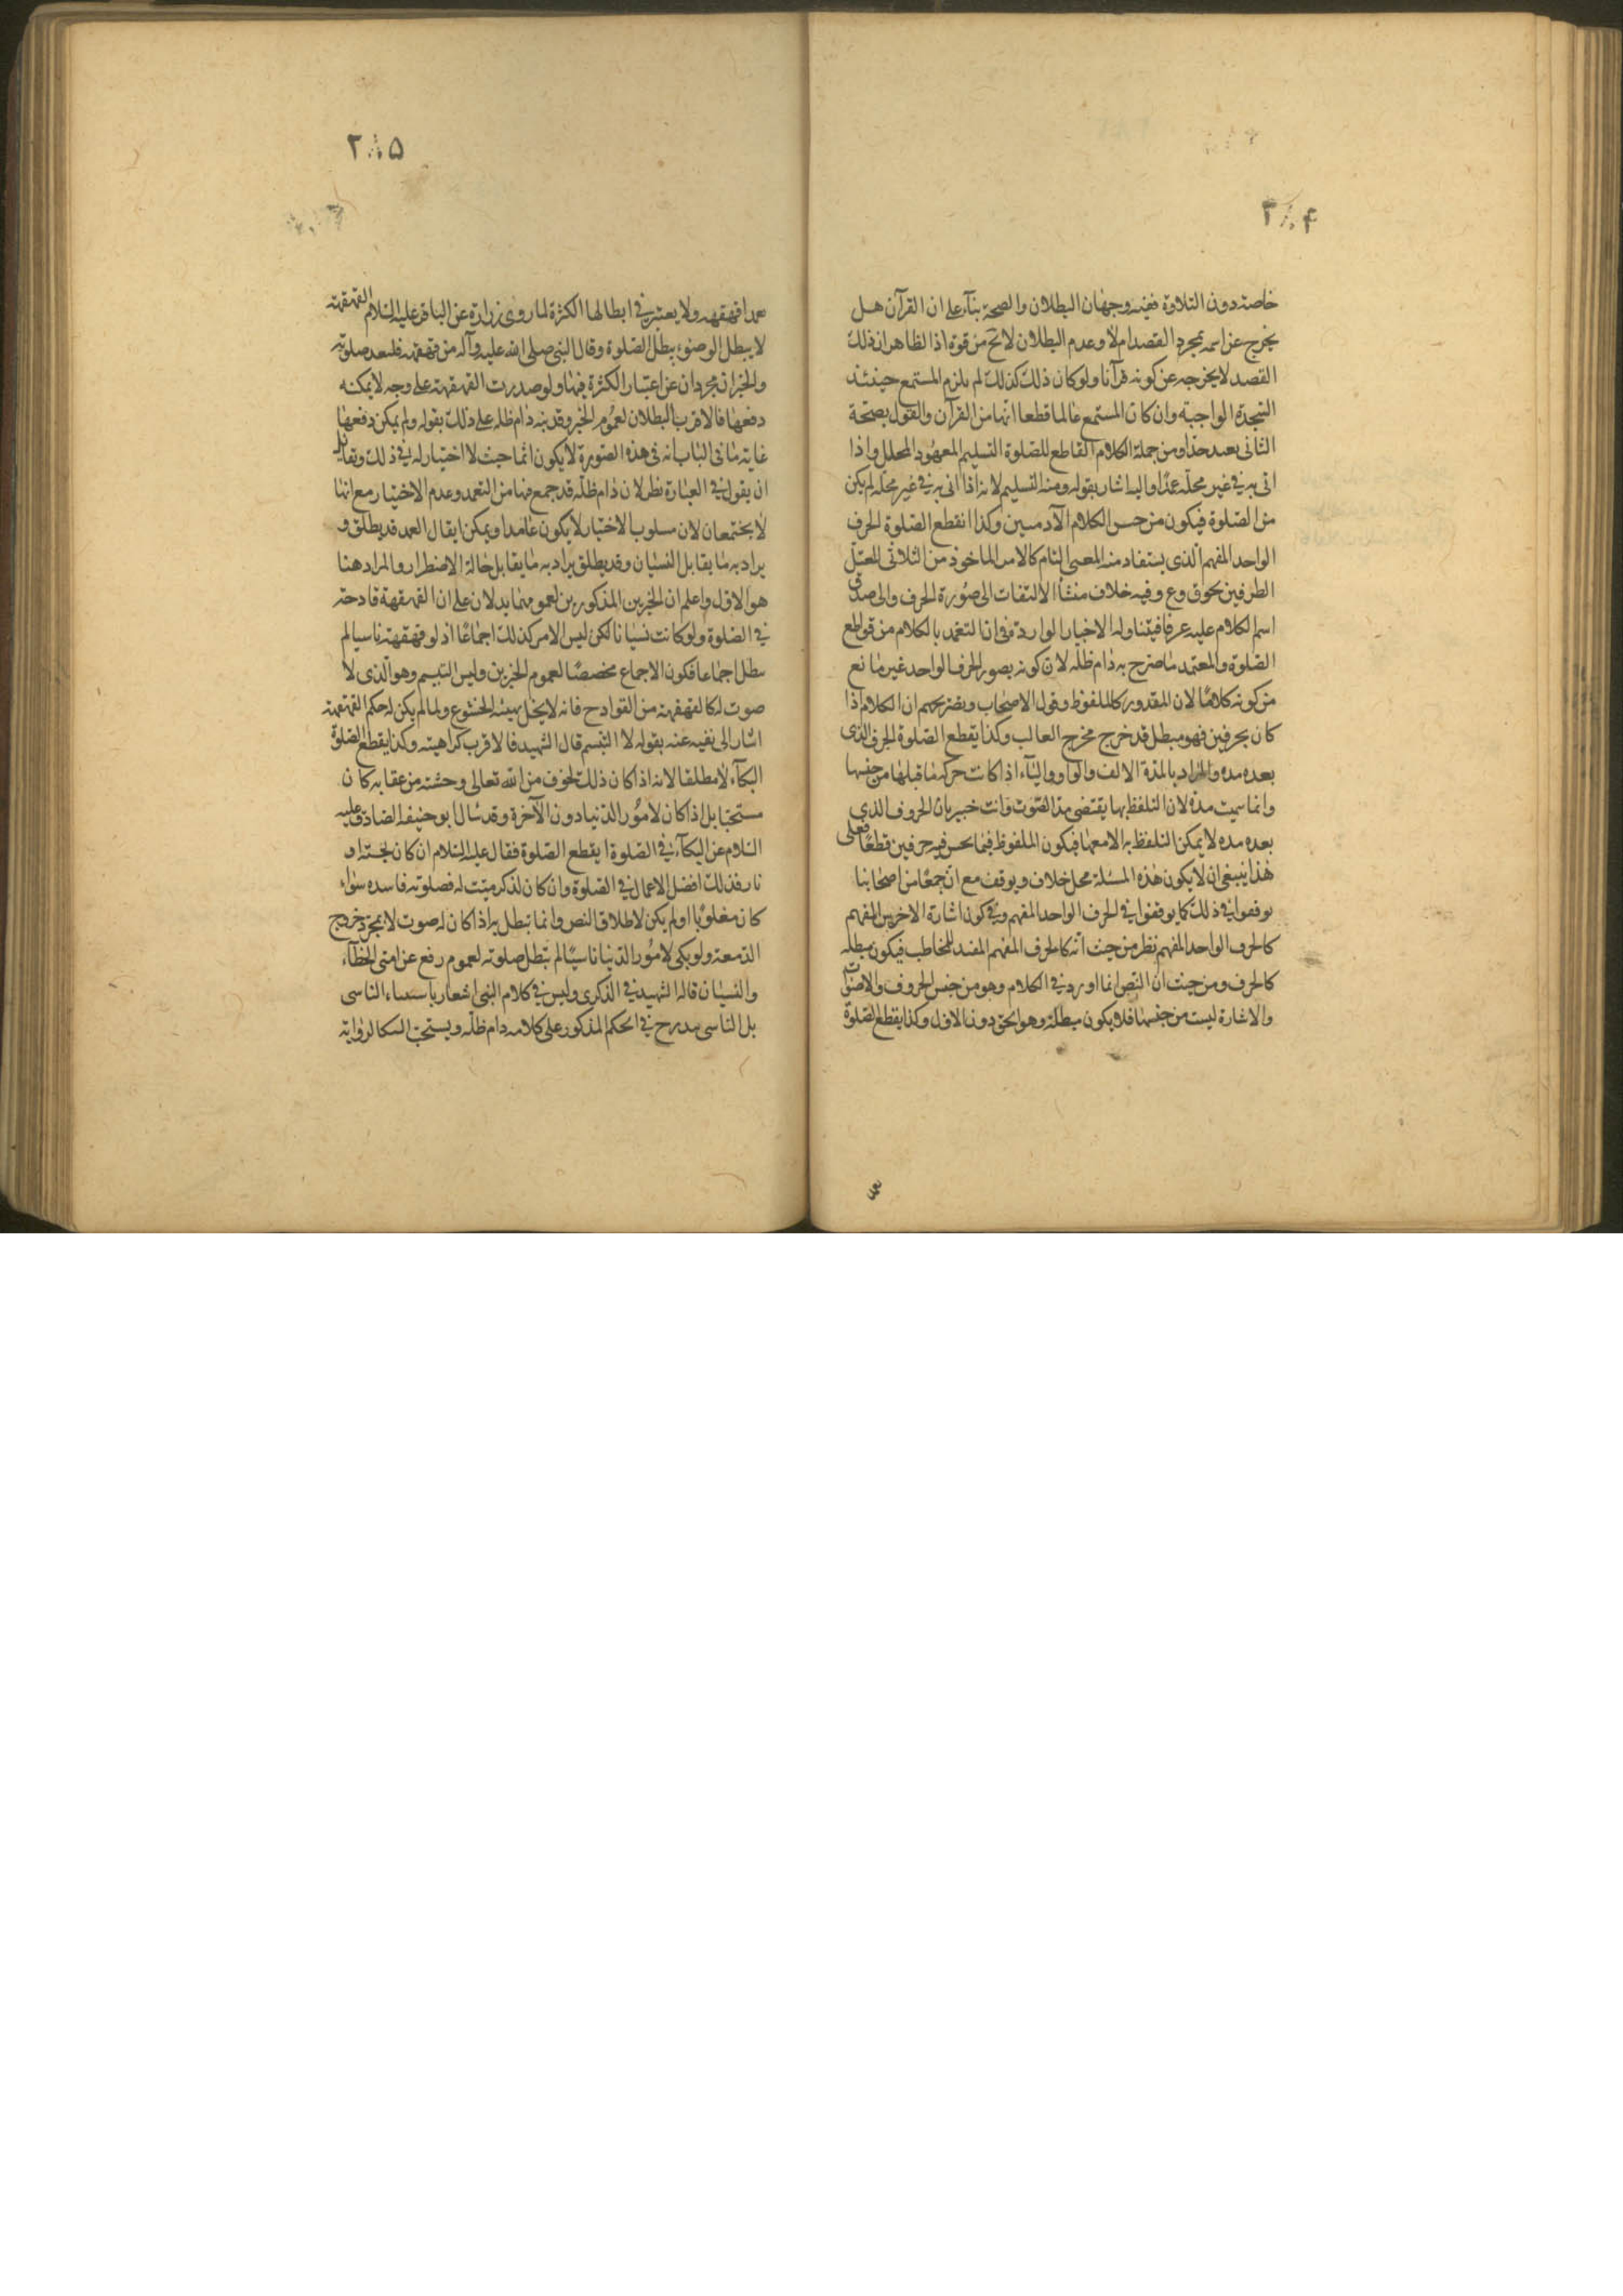 ۲۰۴
خاصة دون التلاوة ففيه وجهان البطلان والصحة بناء على ان القرآن هل
يخرج عن اسمه بمجرد القصد ام لا وعدم البطلان لا يخ من قوة اذ الظاهر ان ذلك
القصد لا يخرجه عن كونه قرآنا ولو كان ذلك كذلك لم يلزم المستمع حينئذ
السجدة الواجبة وان كان المستمع عالما قطعا انها من القرآن والقول بصحة
الثانى بعيد جدا ومن جملة الكلام القاطع للصلوة التسليم المعهود المحلل واذا
اتى به في غير محله عمدا واليه اشار بقوله ومنه التسليم لانه اذا اتى به في غير محله لم يكن
من الصلوة فيكون من جنس الكلام الآدميين وكذا انقطع الصلوة الحرف
الواحد المفهم الذى يستفاد منه المعنى التام كالامر الماخوذ من الثلاثى المعتل
الطرفين نحو ق وع وفيه خلاف منشأ الالتفات الى صورة الحرف والى صدق
اسم الكلام عليه عرفا فيتناوله الاخبار الواردة فى ان التعمد بالكلام من قواطع
الصلوة والمعتمد ما صرح به دام ظله لان كونه بصور الحرف الواحد غير مانع
من كونه كلاما لان المقدور كالملفوظ وقول الاصحاب وبصريحهم ان الكلام اذا
كان بحرفين فهو مبطل قد خرج مخرج الغالب وكذا يقطع الصلوة الحرف الذى
بعده مده والمراد بالمدة الالف والواو والياء اذا كانت حركة ما قبلها من جنسها
وانما سميت مدة لان التلفظ بها يقتضى مد الصوت وانت خبير بان الحروف الذى
بعده مده لا يمكن التلفظ به الا معها فيكون الملفوظ فيما نحن فيه حرفين قطعا فعلى
هذا ينبغى ان لا يكون هذه المسئلة محل خلاف ويوقف مع ان جمعا من اصحابنا
توقفوا في ذلك كما توقفوا في الحرف الواحد المفهم وفي كون اشارة الاخرس المفهم
كالحرف الواحد المفهم نظر من حيث انه كالحرف المفهم المفيد للمخاطب فيكون مبطله
كالحرف ومن حيث ان النص انما اورد في الكلام وهو من جنس الحروف والاصوات
والاشارة ليست من جنسها فلا يكون مبطلة وهو الحق دون الاول وكذا يقطع الصلوة
۲۰۵
عمدا قهقهه ولا يعتبر في ابطالها الكثرة لما روى زرارة عن الباقر عليه السلام القهقهة
لا يبطل الوضوء يبطل الصلوة وقال النبى صلى الله عليه وآله من قهقهه فليعد صلوته
والخبران مجردان عن اعتبار الكثرة فيها ولو صدرت القهقهة على وجه لا يمكنه
دفعها فالاقرب البطلان لعموم الخبر وقد نبه دام ظله على ذلك بقوله ولم يمكن دفعها
غاية ما فى الباب انه فى هذه الصورة لا يكون اثما حيث لا اختيار له في ذلك ولقائل
ان يقول في العبارة نظر لان دام ظله قد جمع فيها من التعمد وعدم الاختيار مع انها
لا يجتمعان لان مسلوب الاختيار لا يكون عامدا ويمكن ان يقال العمد قد يطلق و
يراد به ما يقابل النسيان وقد يطلق يراد به ما يقابل حالة الاضطرار والمراد هنا
هو الاول واعلم ان الخبرين المذكورين لعمومهما يدلان على ان القهقهة قادحة
في الصلوة ولو كانت نسيانا لكن ليس الامر كذلك اجماعا اذ لو قهقهة ناسيا لم
يبطل اجماعا فيكون الاجماع مخصصا لعموم الخبرين وليس التبسم وهو الذى لا
صوت له كالقهقهة من القوادح فانه لا يخل بهيئه الخشوع ولما لم يكن له حكم القهقهة
اشار الى نفيه عنه بقوله لا التبسم قال الشهيد فالاقرب كراهيته وكذا يقطع الصلوة
البكاء لا مطلقا لانه اذا كان ذلك لخوف من الله تعالى وخشيته من عقابه كان
مستحبا بل اذا كان لامور الدنيا دون الآخرة وقد سئال ابو حنيفه الصادق عليه
السلام عن البكاء في الصلوة ايقطع الصلوة فقال عليه السلام ان كان لجنة او
نار فذلك افضل الاعمال في الصلوة وان كان لذكر ميت له فصلوته فاسده سواء
كان مغلوبا او لم يكن لاطلاق النص وانما تبطل به اذا كان له صوت لا بمجرد خروج
الدمعة ولو بكى لامور الدنيا ناسيا لم تبطل صلوته لعموم رفع عن امتى الخطاء
والنسيان قاله الشهيد في الذكرى وليس في كلام النبى اشعار باستثناء الناسى
بل الناسى مدرج في الحكم المذكور على كلامه دام ظله ويستحب البكا لرواية